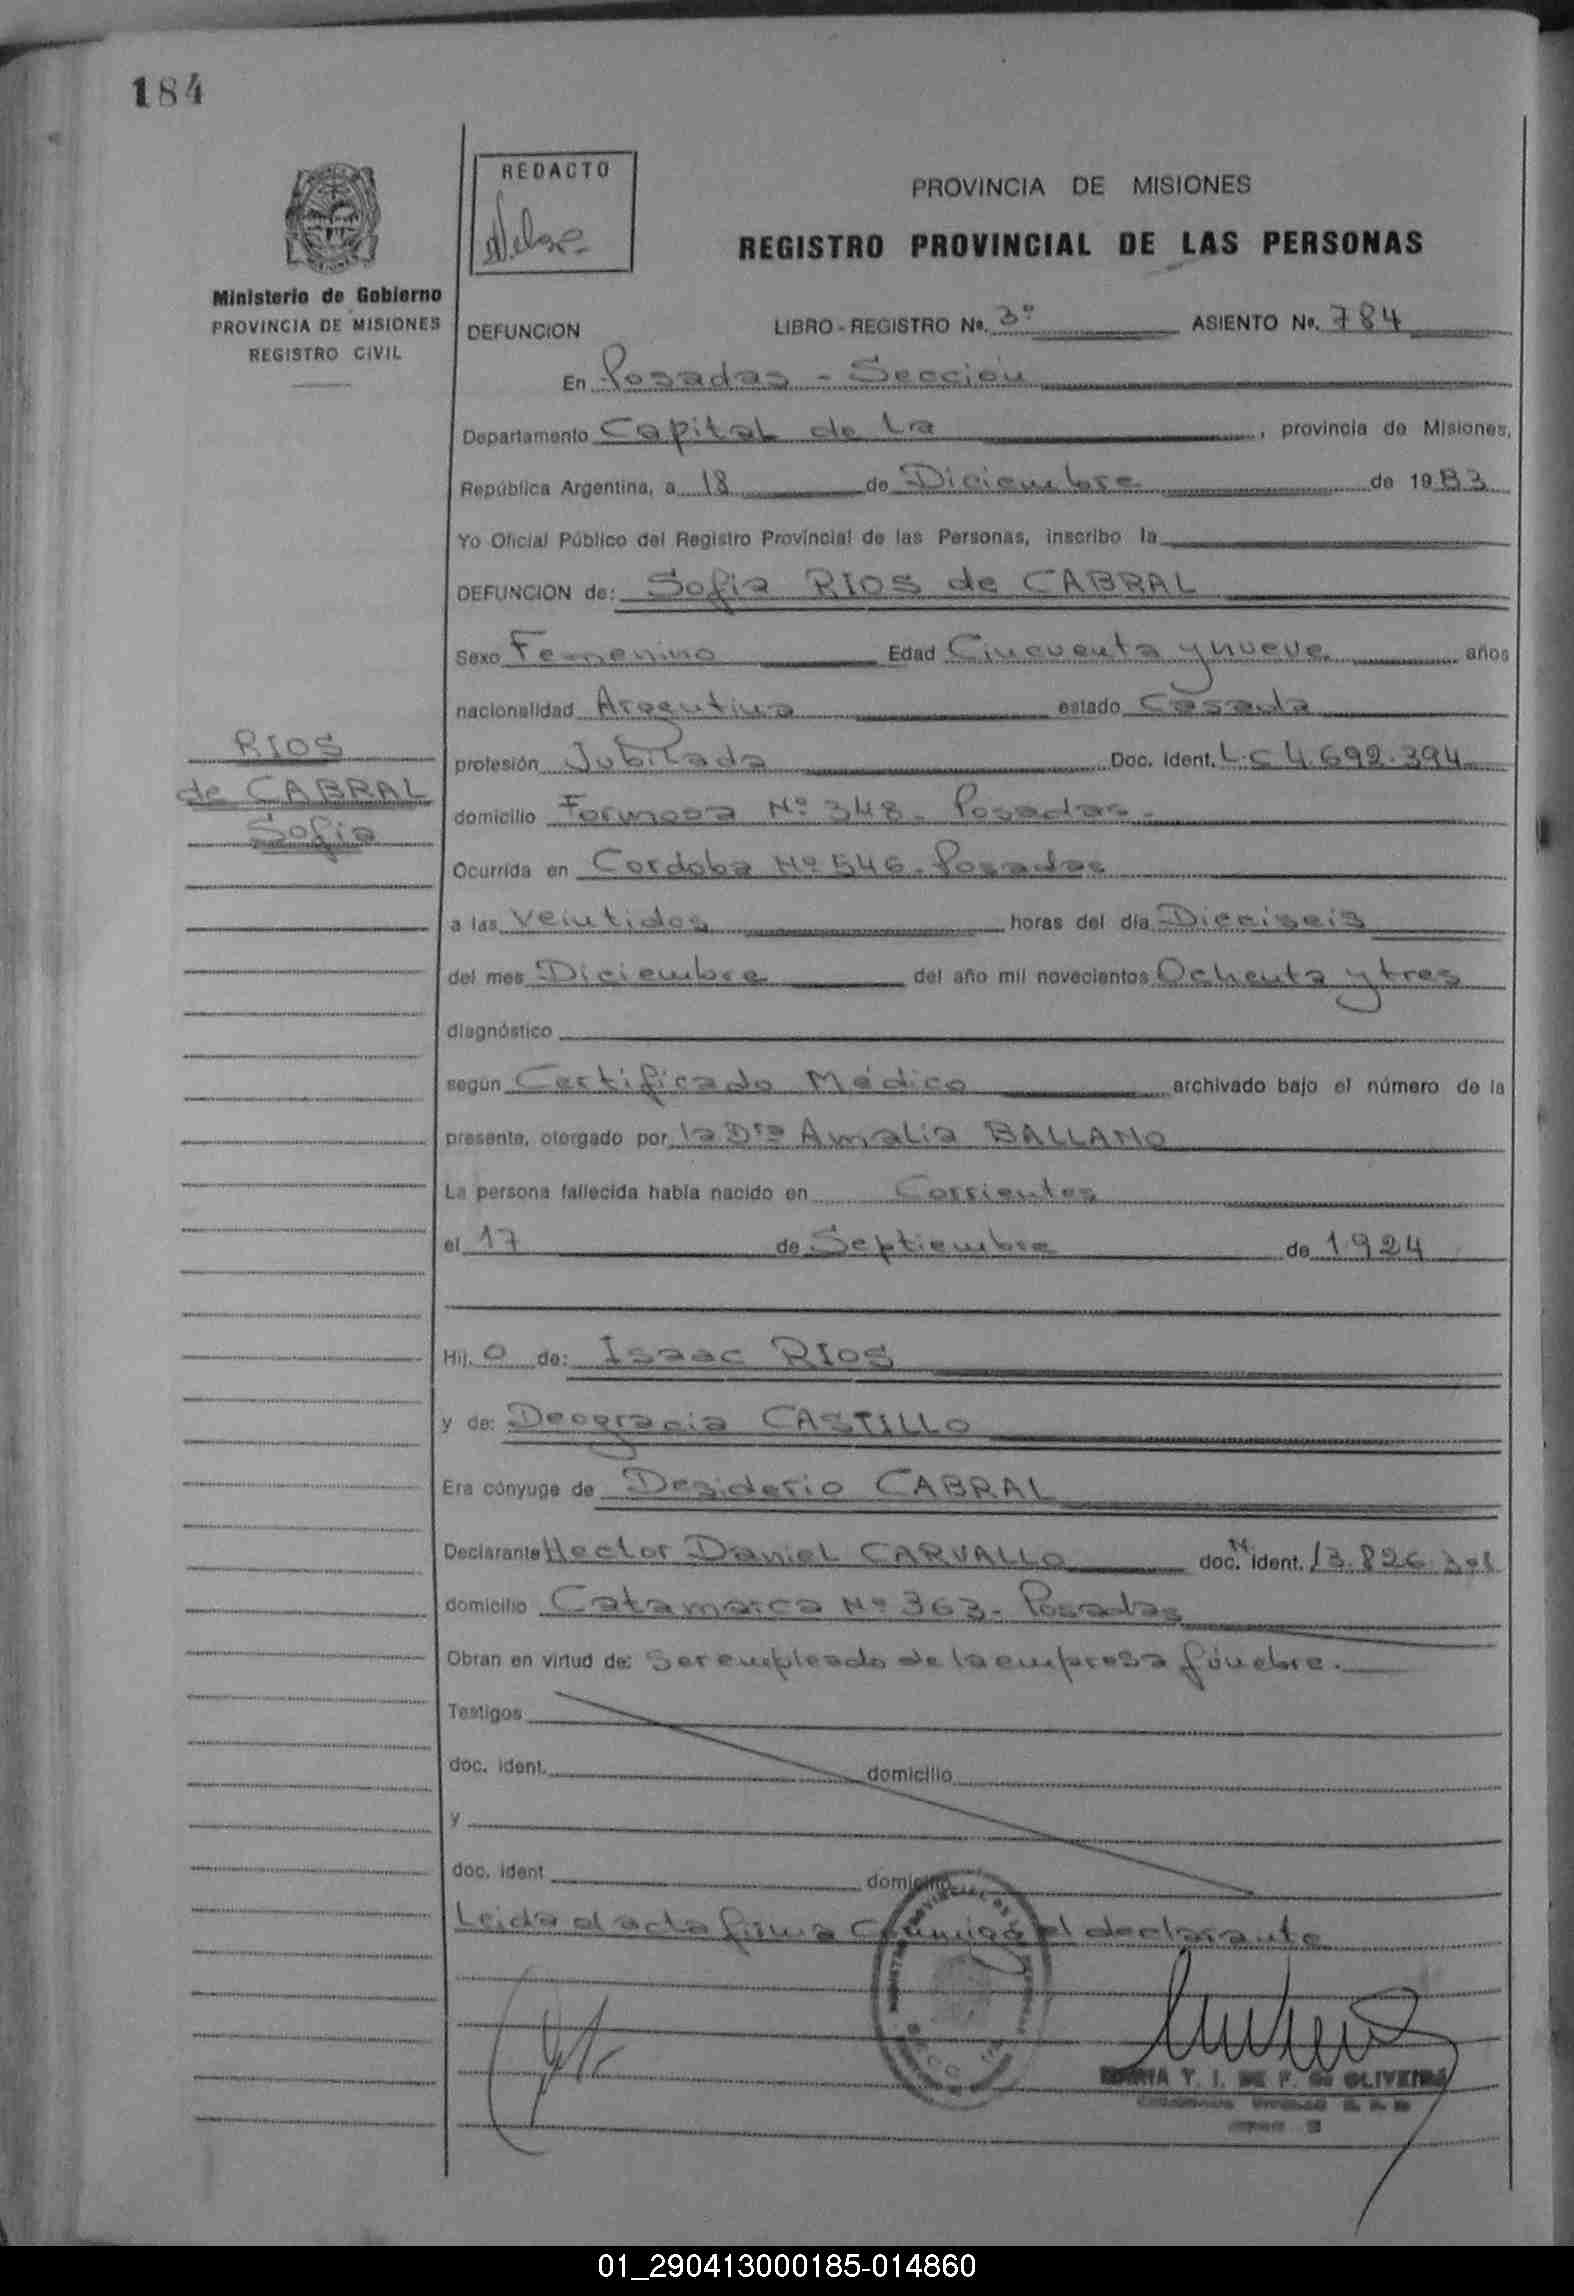 184
REDACTO
PROVINCIA DE MISIONES
REGISTRO PROVINCIAL DE LAS PERSONAS
Ministerio de Gobierno
PROVINCIA DE MISIONES
REGISTRO CIVIL
DEFUNCION LIBRO - REGISTRO Nº. 3º ASIENTO Nº. 784
En Posadas - Sección
Departamento Capital de la , provincia de Misiones,
República Argentina, a 18 de Diciembre de 1983
Yo Oficial Público del Registro Provincial de las Personas, inscribo la
DEFUNCION de: Sofia RIOS de CABRAL
Sexo Femenino Edad Cincuenta y nueve años
nacionalidad Argentina estado Casada
RIOS
de CABRAL
Sofia
profesión Jubilada Doc. Ident. L.C 4.692.394
domicilio Formosa Nº 348. Posadas.
Ocurrida en Cordoba Nº 546. Posadas
a las Veintidos horas del día Dieciseis
del mes Diciembre del año mil novecientos Ochenta y tres
diagnóstico
según Certificado Médico archivado bajo el número de la
presente, otorgado por la Dra Amalia BALLANO
La persona fallecida había nacido en Corrientes
el 17 de Septiembre de 1.924
Hij. o de: Isaac RIOS
y de: Deogracia CASTILLO
Era cónyuge de Desiderio CABRAL
Declarante Hector Daniel CARVALLO doc. N ident. 13.826.
domicilio Catamarca Nº 363. Posadas
Obran en virtud de: Ser empleado de la empresa fúnebre.
Testigos
doc. ident. domicilio
y
doc. ident domicilio
Leida el acta firma Conmigo el declarante
T. I. DE F. DE OLIVEIRA
01_290413000185-014860